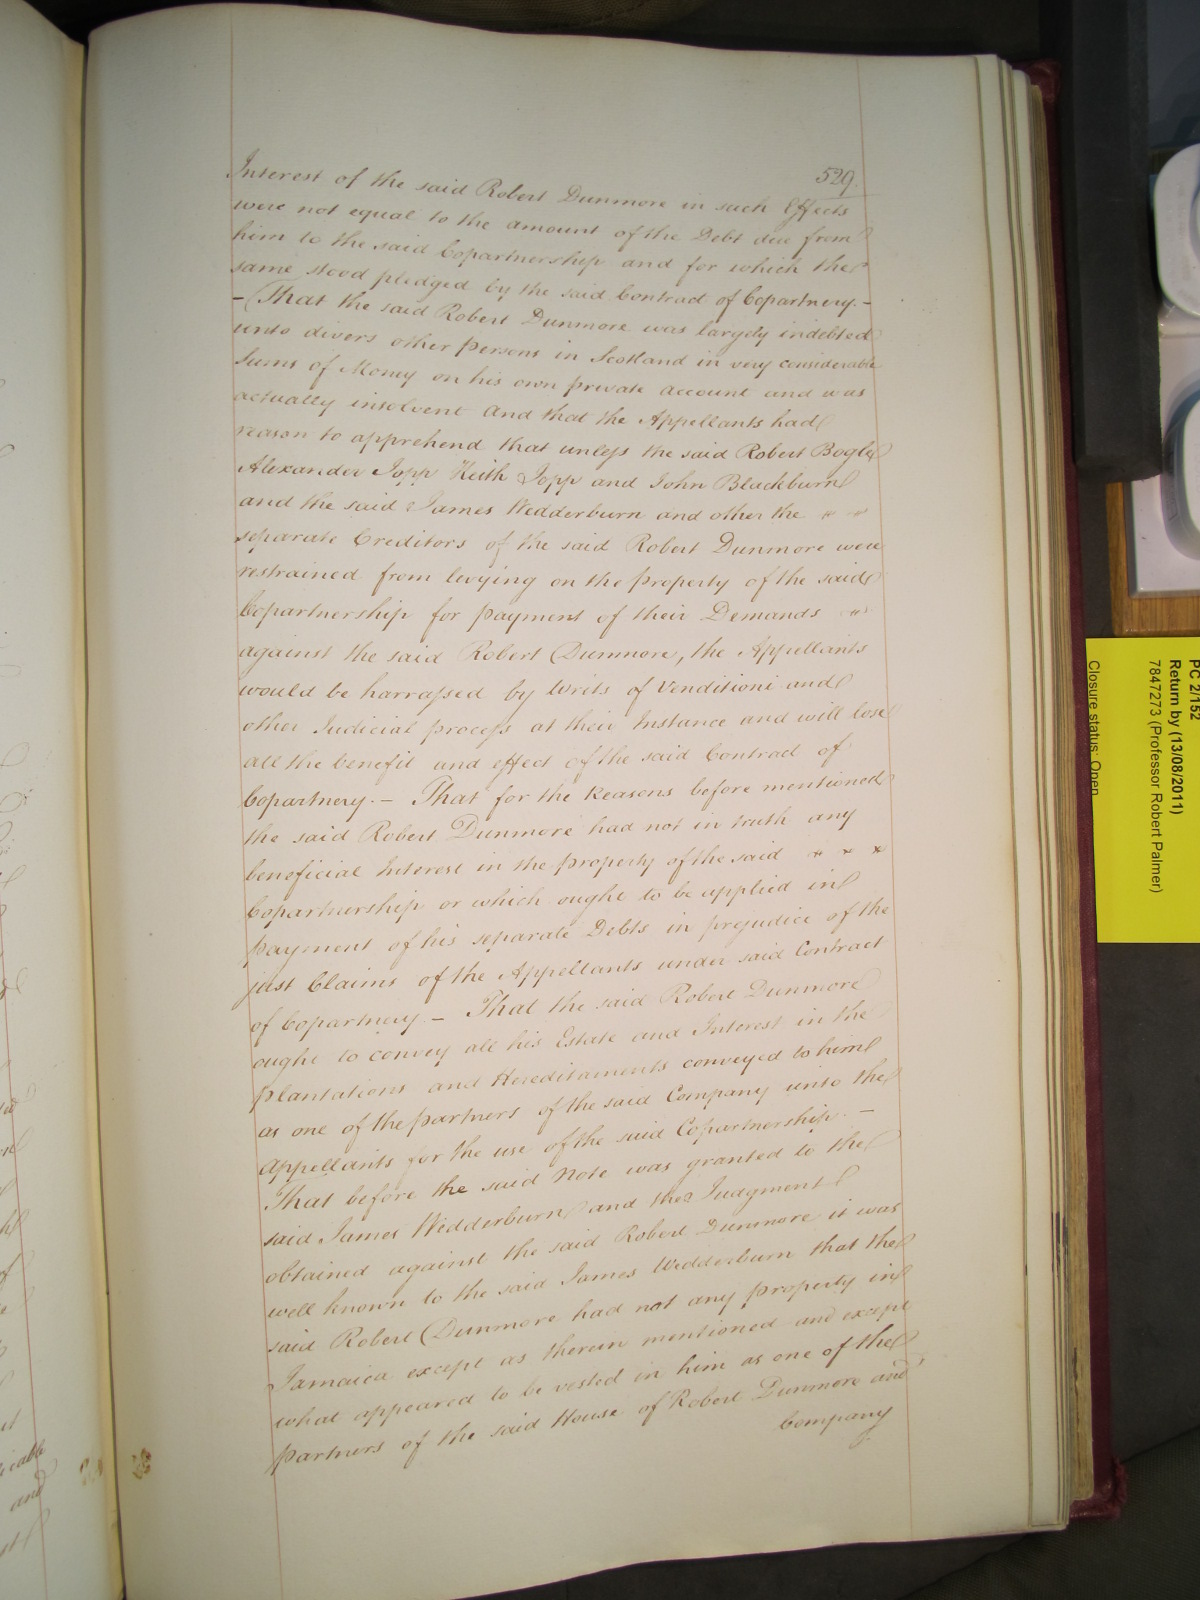 529.
Interest of the said Robert Dunmore in such Effects
were not equal to the amount of the Debt due from
him to the said Copartnership and for which the
same stood pledged by the said Contract of Copartnery. -
- That the said Robert Dunmore was largely indebted
unto divers other persons in Scotland in very considerable
Sums of Money on his own private account and was
actually insolvent And that the Appellants had
reason to apprehend that unless the said Robert Bogle
Alexander Jopp Keith Jopp and John Blackburn
and the said James Wedderburn and other the
separate Creditors of the said Robert Dunmore were
restrained from levying on the property of the said
Copartnership for payment of their Demands
against the said Robert Dunmore, the Appellants
would be harrassed by Writs of Venditioni and
other Judicial process at their Instance and will lose
all the benefit and effect of the said Contract of
Copartnery. - That for the Reasons before mentioned
the said Robert Dunmore had not in truth any
beneficial Interest in the property of the said
Copartnership or which ought to be applied in
payment of his separate Debts in prejudice of the
just Claims of the Appellants under said Contract
of Copartnery - That the said Robert Dunmore
ought to convey all his Estate and Interest in the
plantations and Hereditaments conveyed to him
as one of the partners of the said Company unto the
Appellants for the use of the said Copartnership. -
That before the said Note was granted to the
said James Wedderburn and the Judgment
obtained against the said Robert Dunmore it was
well known to the said James Wedderburn that the
said Robert Dunmore had not any property in
Jamaica except as therein mentioned and except
what appeared to be vested in him as one of the
partners of the said House of Robert Dunmore and
Company
PC 2/152
Return by (13/08/2011)
7847273 (Professor Robert Palmer)
Closure status: Open